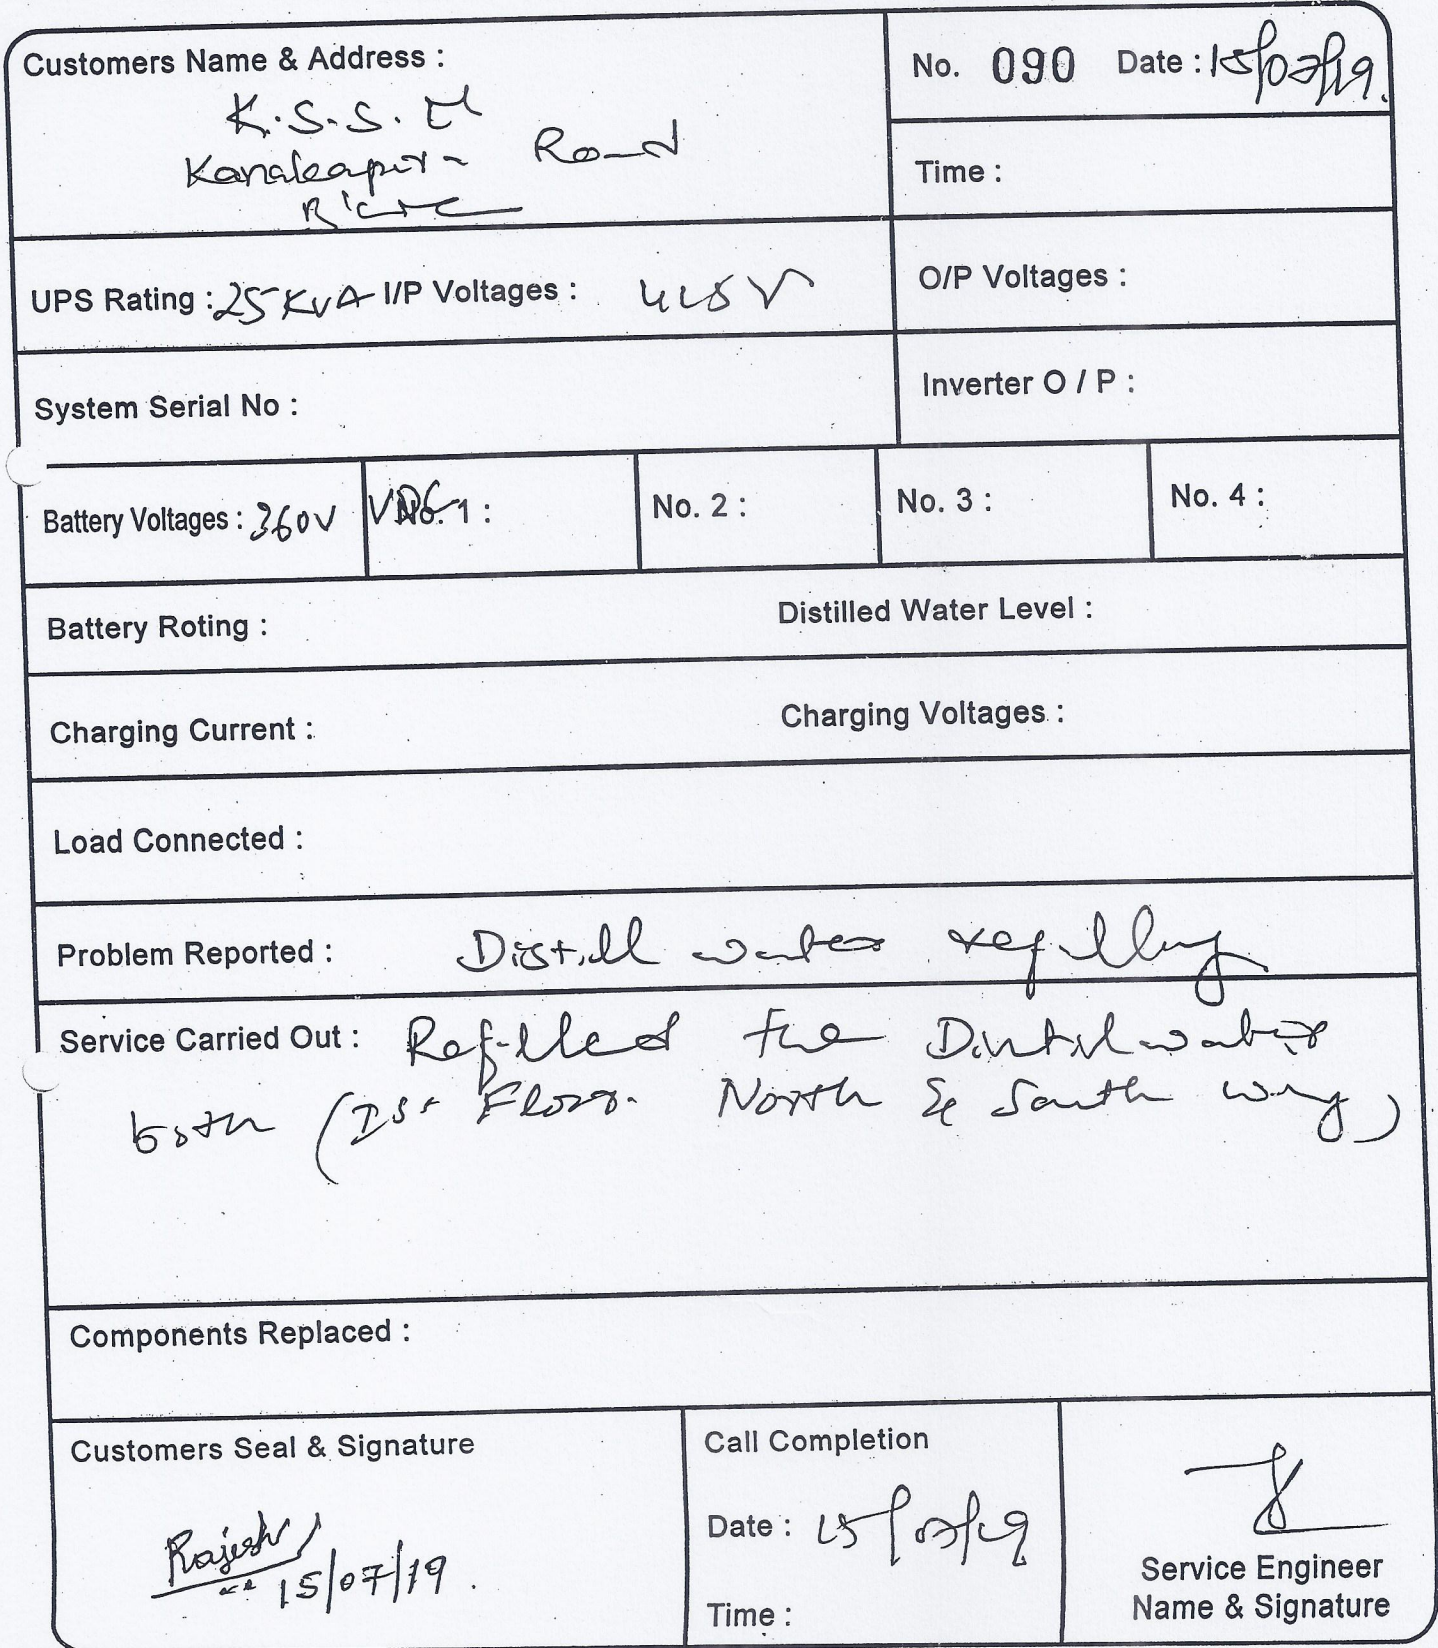 Customers Name & Address :
K.S.S.
Road
No. 090 Date : 15/07/19.
Time :
UPS Rating : 25 KVA I/P Voltages : 415 V
O/P Voltages :
System Serial No :
Inverter O / P :
Battery Voltages : 360V VDC No. 1 : No. 2 : No. 3 : No. 4 :
Battery Roting : Distilled Water Level :
Charging Current : Charging Voltages :
Load Connected :
Problem Reported : Distill water refilling
Service Carried Out : Refilled the water
both (Ist Floor. North & South wing)
Components Replaced :
Customers Seal & Signature
Rajesh
15/07/19.
Call Completion
Date : 15/07/19
Time :
Service Engineer
Name & Signature